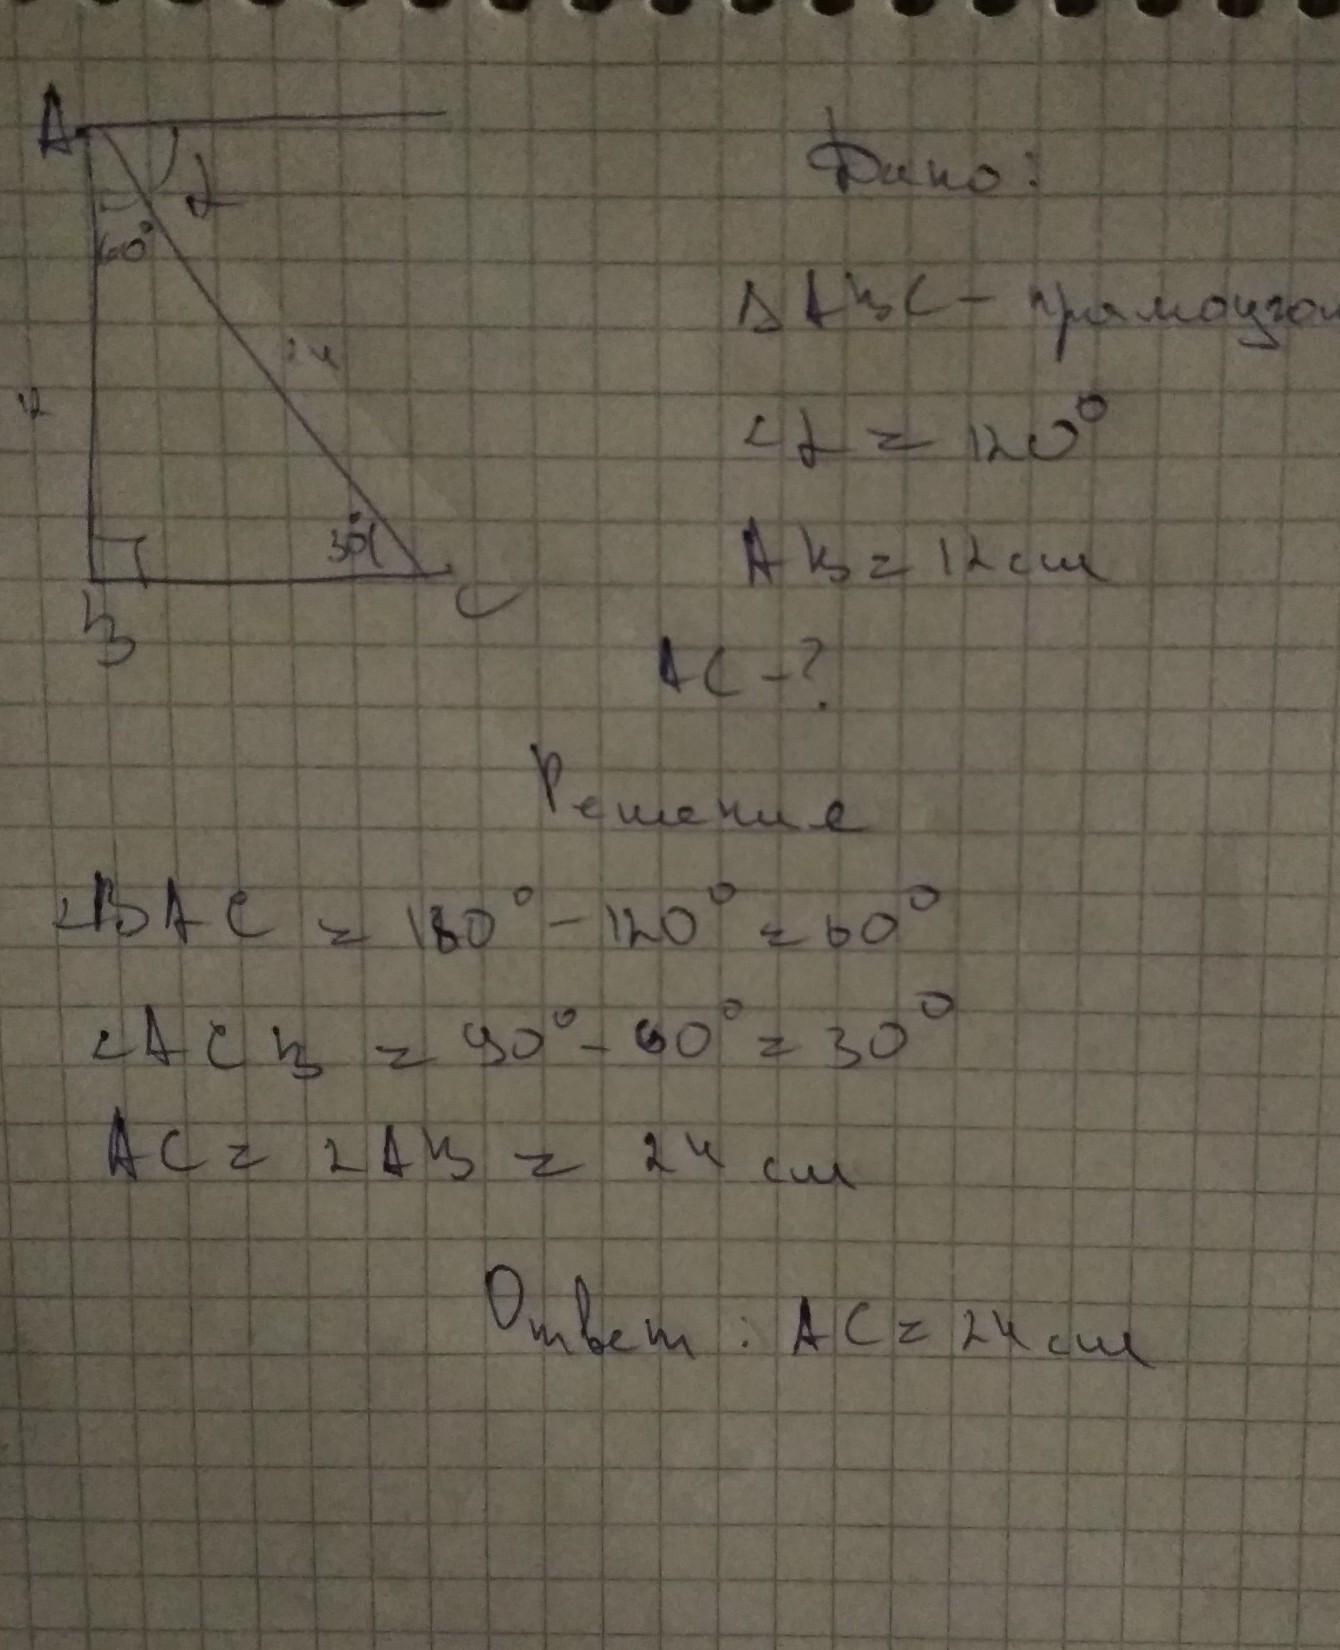 A
α
60°
24
12
30°
B
C
Дано:
Δ ABC – прямоугол
∠α = 120°
AB = 12 см
AC - ?
Решение
∠BAC = 180° - 120° = 60°
∠ACB = 90° - 60° = 30°
AC = 2AB = 24 см
Ответ: AC = 24 см